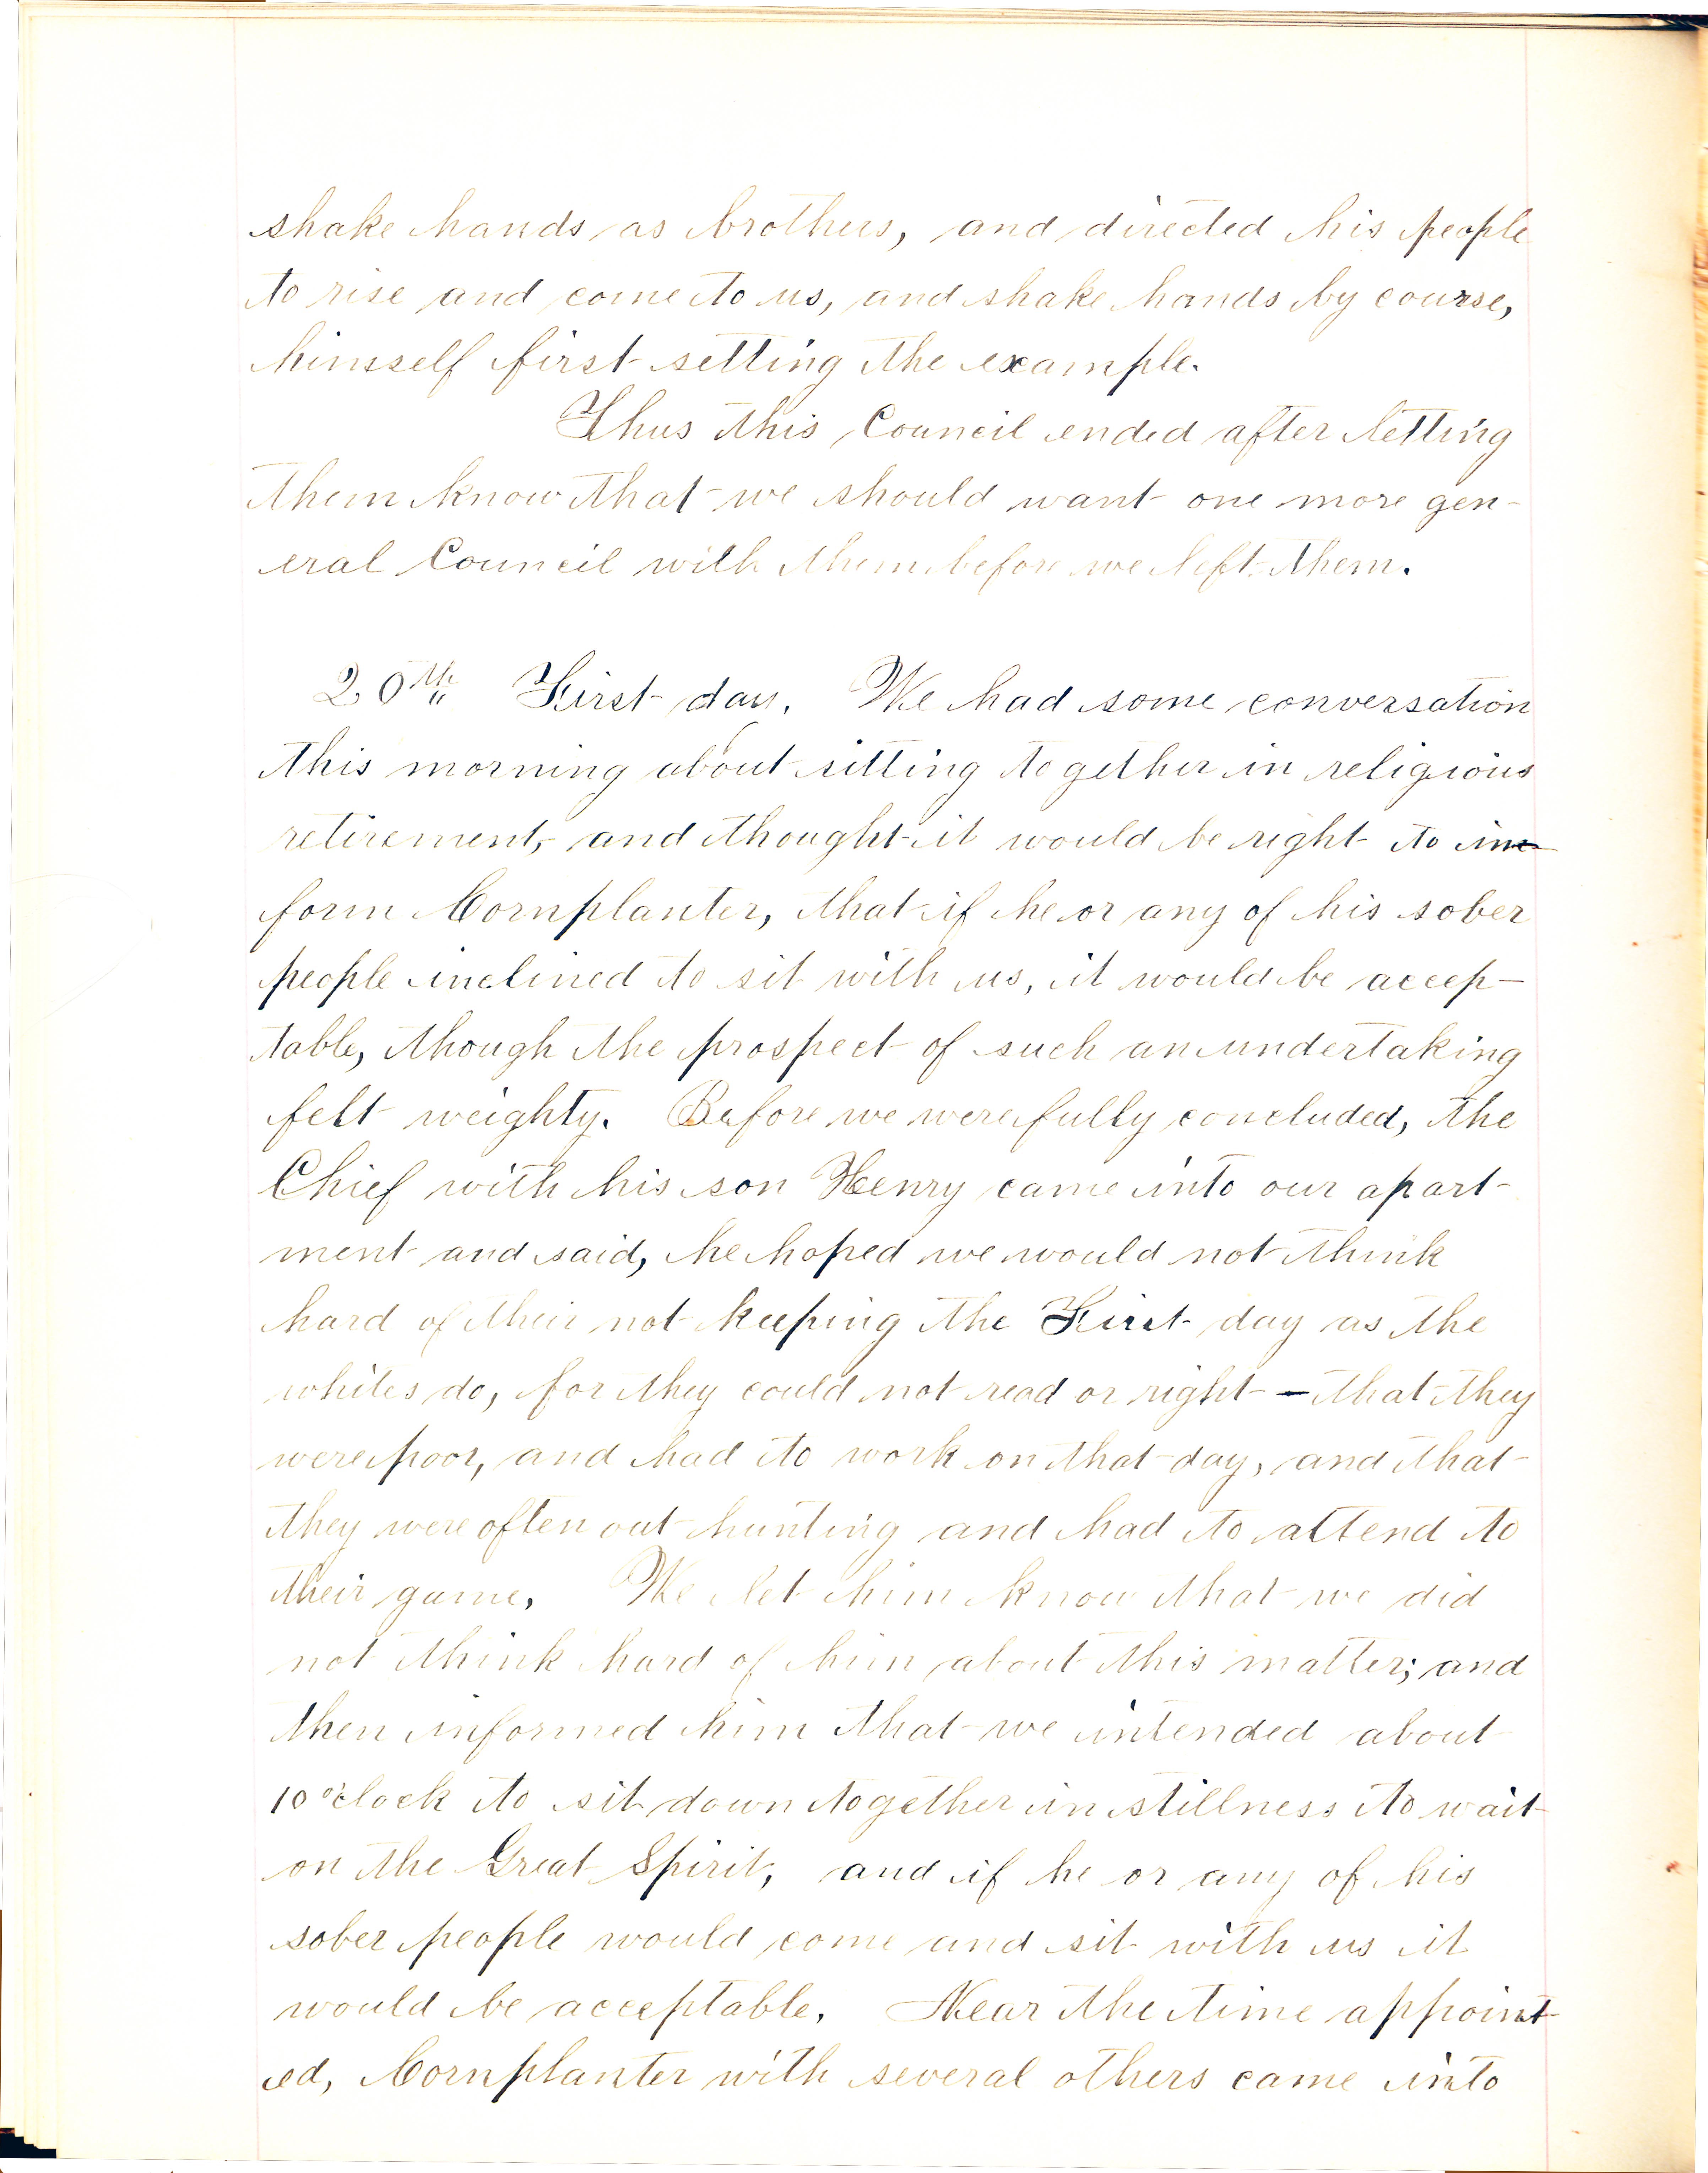 shake hands as brothers, and directed his people
to rise and come to us, and shake hands by course,
himself first setting the example.
Thus this Council ended after letting
them know that we should want one more gen-
eral Council with them before we left them.
20th First day. We had some conversation
this morning about sitting together in religious
retirement, and thought it would be right to in-
form Cornplanter, that if he or any of his sober
people inclined to sit with us, it would be accep-
table, though the prospect of such an undertaking
felt weighty. Before we were fully concluded, the
Chief with his son Henry came into our apart-
ment and said, he hoped we would not think
hard of their not keeping the First day as the
whites do, for they could not read or right - that they
were poor, and had to work on that day, and that
they were often out hunting and had to attend to
their game. We let him know that we did
not think hard of him about this matter; and
then informed him that we intended about
10 o'clock to sit down together in stillness to wait
on the Great Spirit, and if he or any of his
sober people would come and sit with us it
would be acceptable. Near the time appoint-
ed, Cornplanter with several others came into